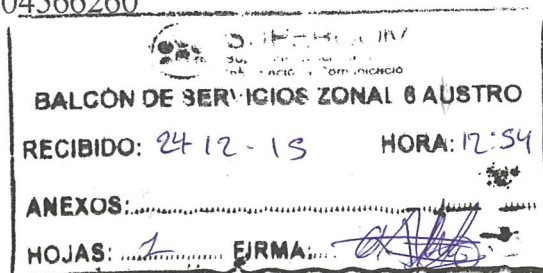 04566260
BALCÓN DE SERVICIOS ZONAL 6 AUSTRO
RECIBIDO: 24 12 - 15 HORA: 12:54
ANEXOS:
HOJAS: 1 FIRMA: